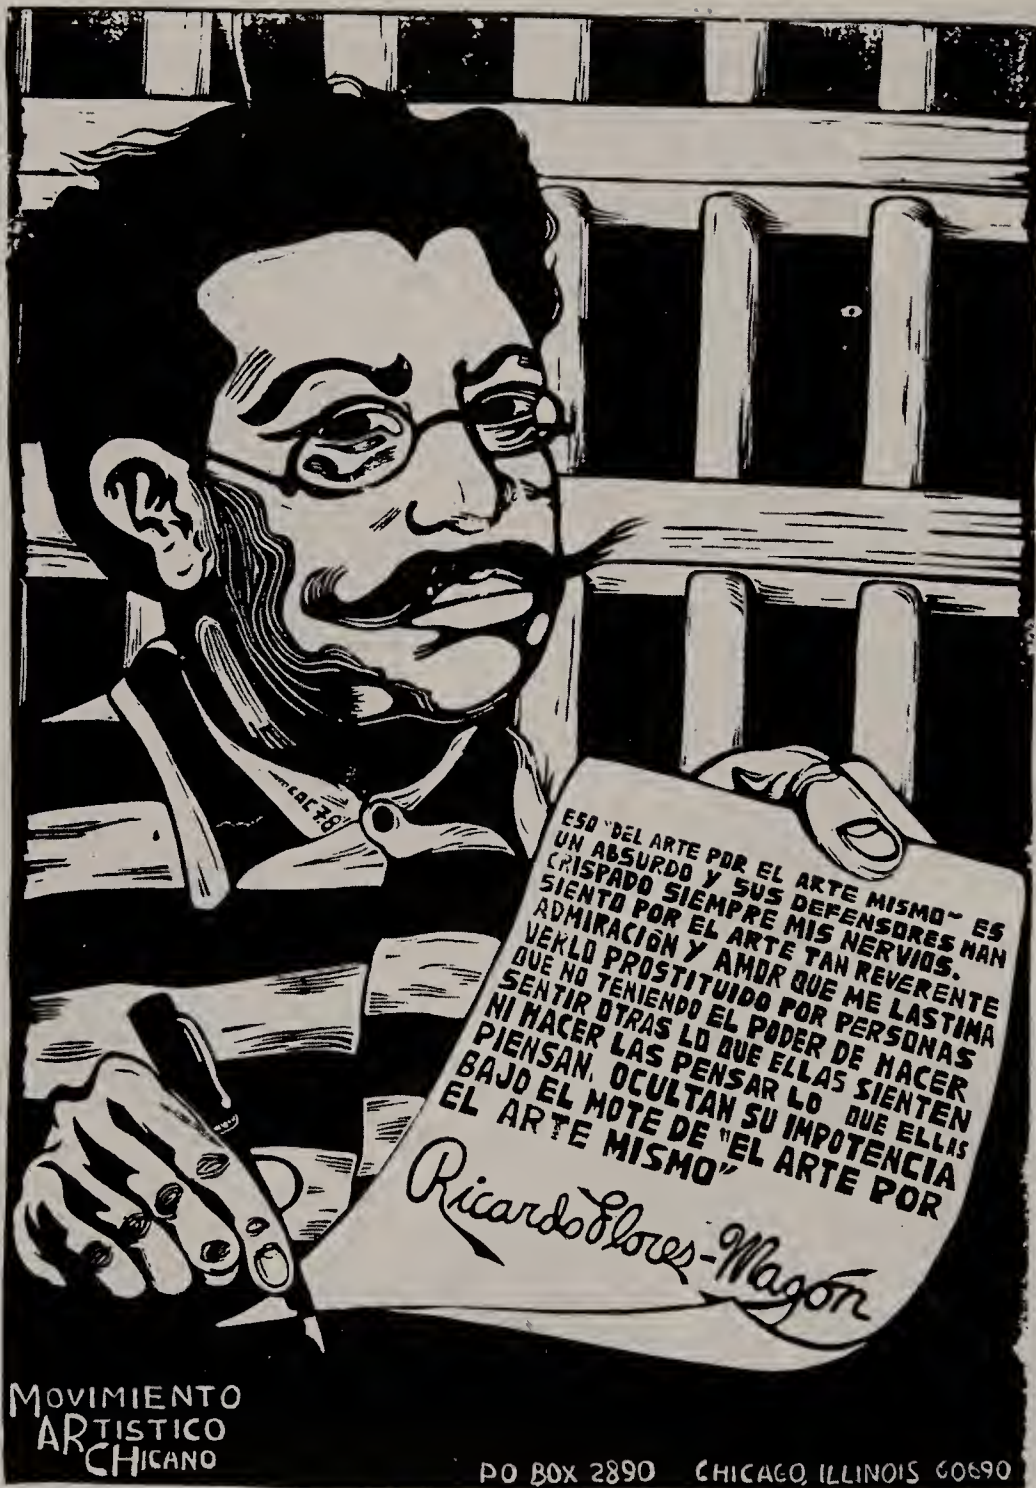 CAC 78
ESO "DEL ARTE POR EL ARTE MISMO" ES
UN ABSURDO Y SUS DEFENSORES HAN
CRISPADO SIEMPRE MIS NERVIOS.
SIENTO POR EL ARTE TAN REVERENTE
ADMIRACION Y AMOR QUE ME LASTIMA
VERLO PROSTITUIDO POR PERSONAS
QUE NO TENIENDO EL PODER DE HACER
SENTIR OTRAS LO QUE ELLAS SIENTEN
NI HACER LAS PENSAR LO QUE ELLAS
PIENSAN, OCULTAN SU IMPOTENCIA
BAJO EL MOTE DE "EL ARTE POR
EL ARTE MISMO"
Ricardo Flores-Magón
MOVIMIENTO
ARTISTICO
CHICANO
PO BOX 2890 CHICAGO, ILLINOIS 60690